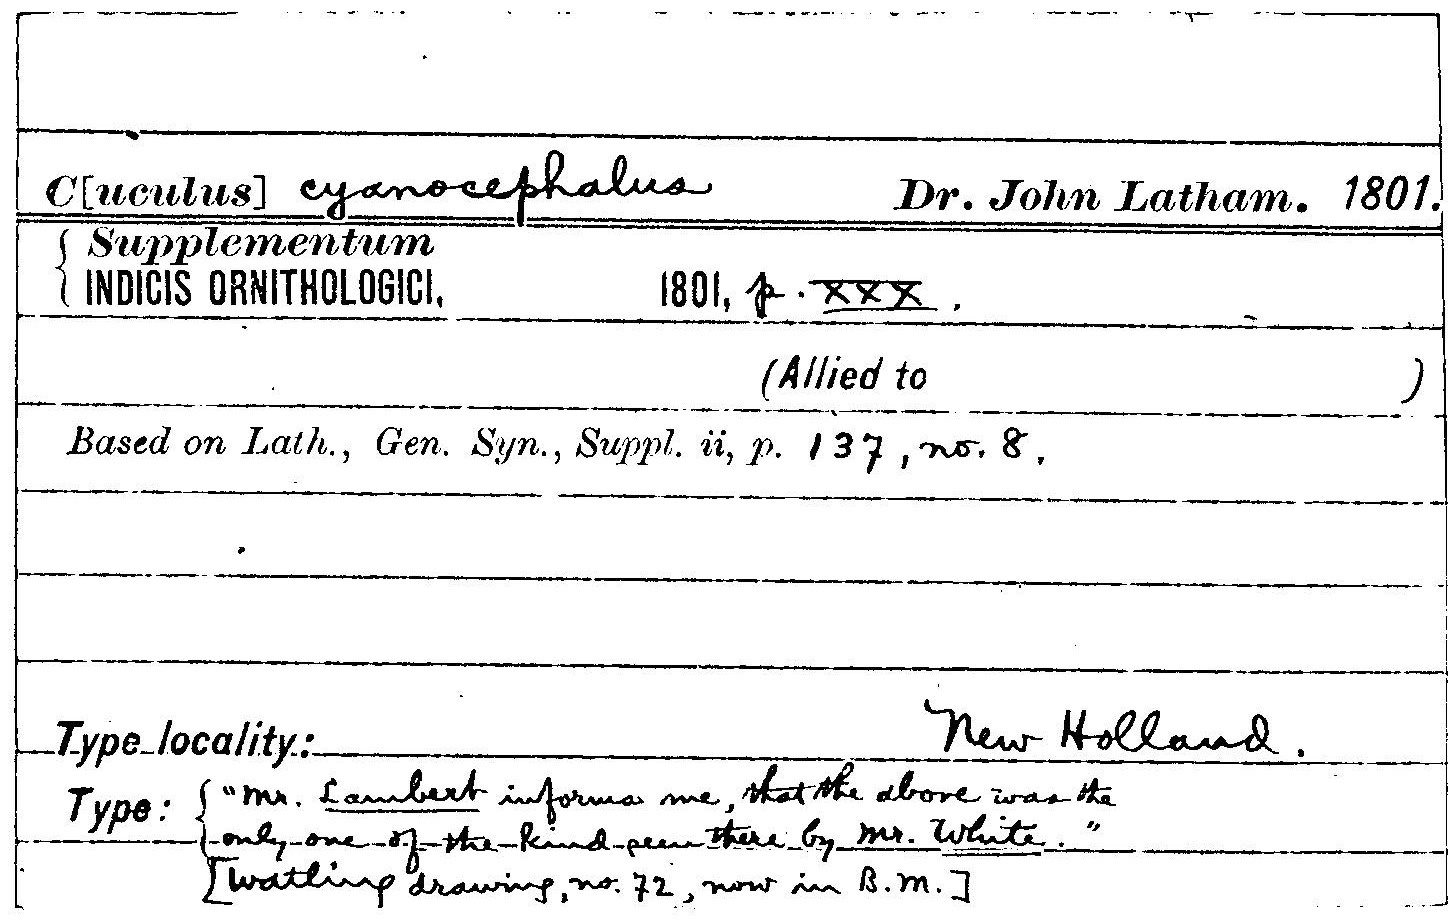 C[uculus] cyanocephalus Dr. John Latham. 1801.
{ Supplementum
INDICIS ORNITHOLOGICI, 1801, p. XXX.
(Allied to )
Based on Lath., Gen. Syn., Suppl. ii, p. 137, no. 8.
Type locality: New Holland.
Type: { "Mr. Lambert informs me, that the above was the
only one of the kind seen there by Mr. White."
[Watling drawing, no. 72, now in B.M.]